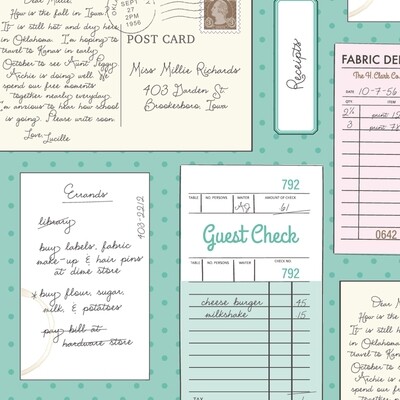 Dear Millie,
How is the fall in Iowa?
It is still hot and dry here
in Oklahoma. I'm hoping to
travel to Kansas in early
October to see Aunt Peggy.
Archie is doing well. We
spend our free moments
together nearly everyday.
I'm anxious to hear how school
is going. Please write soon
Love, Lucille
SEPT
27
2PM
1956
POST CARD
Miss Millie Richards
403 Garden St.
Brookesboro, Iowa
Receipts
FABRIC DE
The H. Clark Co
DATE 10-7-56
QTY. ITEM
2½ print 15
3 print 7x
0642
Errands
library
buy labels, fabric
make-up & hair pins
at dime store
*buy flour, sugar,
milk, & potatoes
pay bill at
hardware store
403-2212
792
TABLE NO. PERSONS WAITER AMOUNT OF CHECK
AJ 61
Guest Check
TABLE NO. PERSONS WAITER CHECK NO.
792
cheese burger 45
milkshake 15
TAX 1
Dear M
How is the
It is still h
in Oklahoma
travel to Kans
October to s
Archie is
spend our
togeth